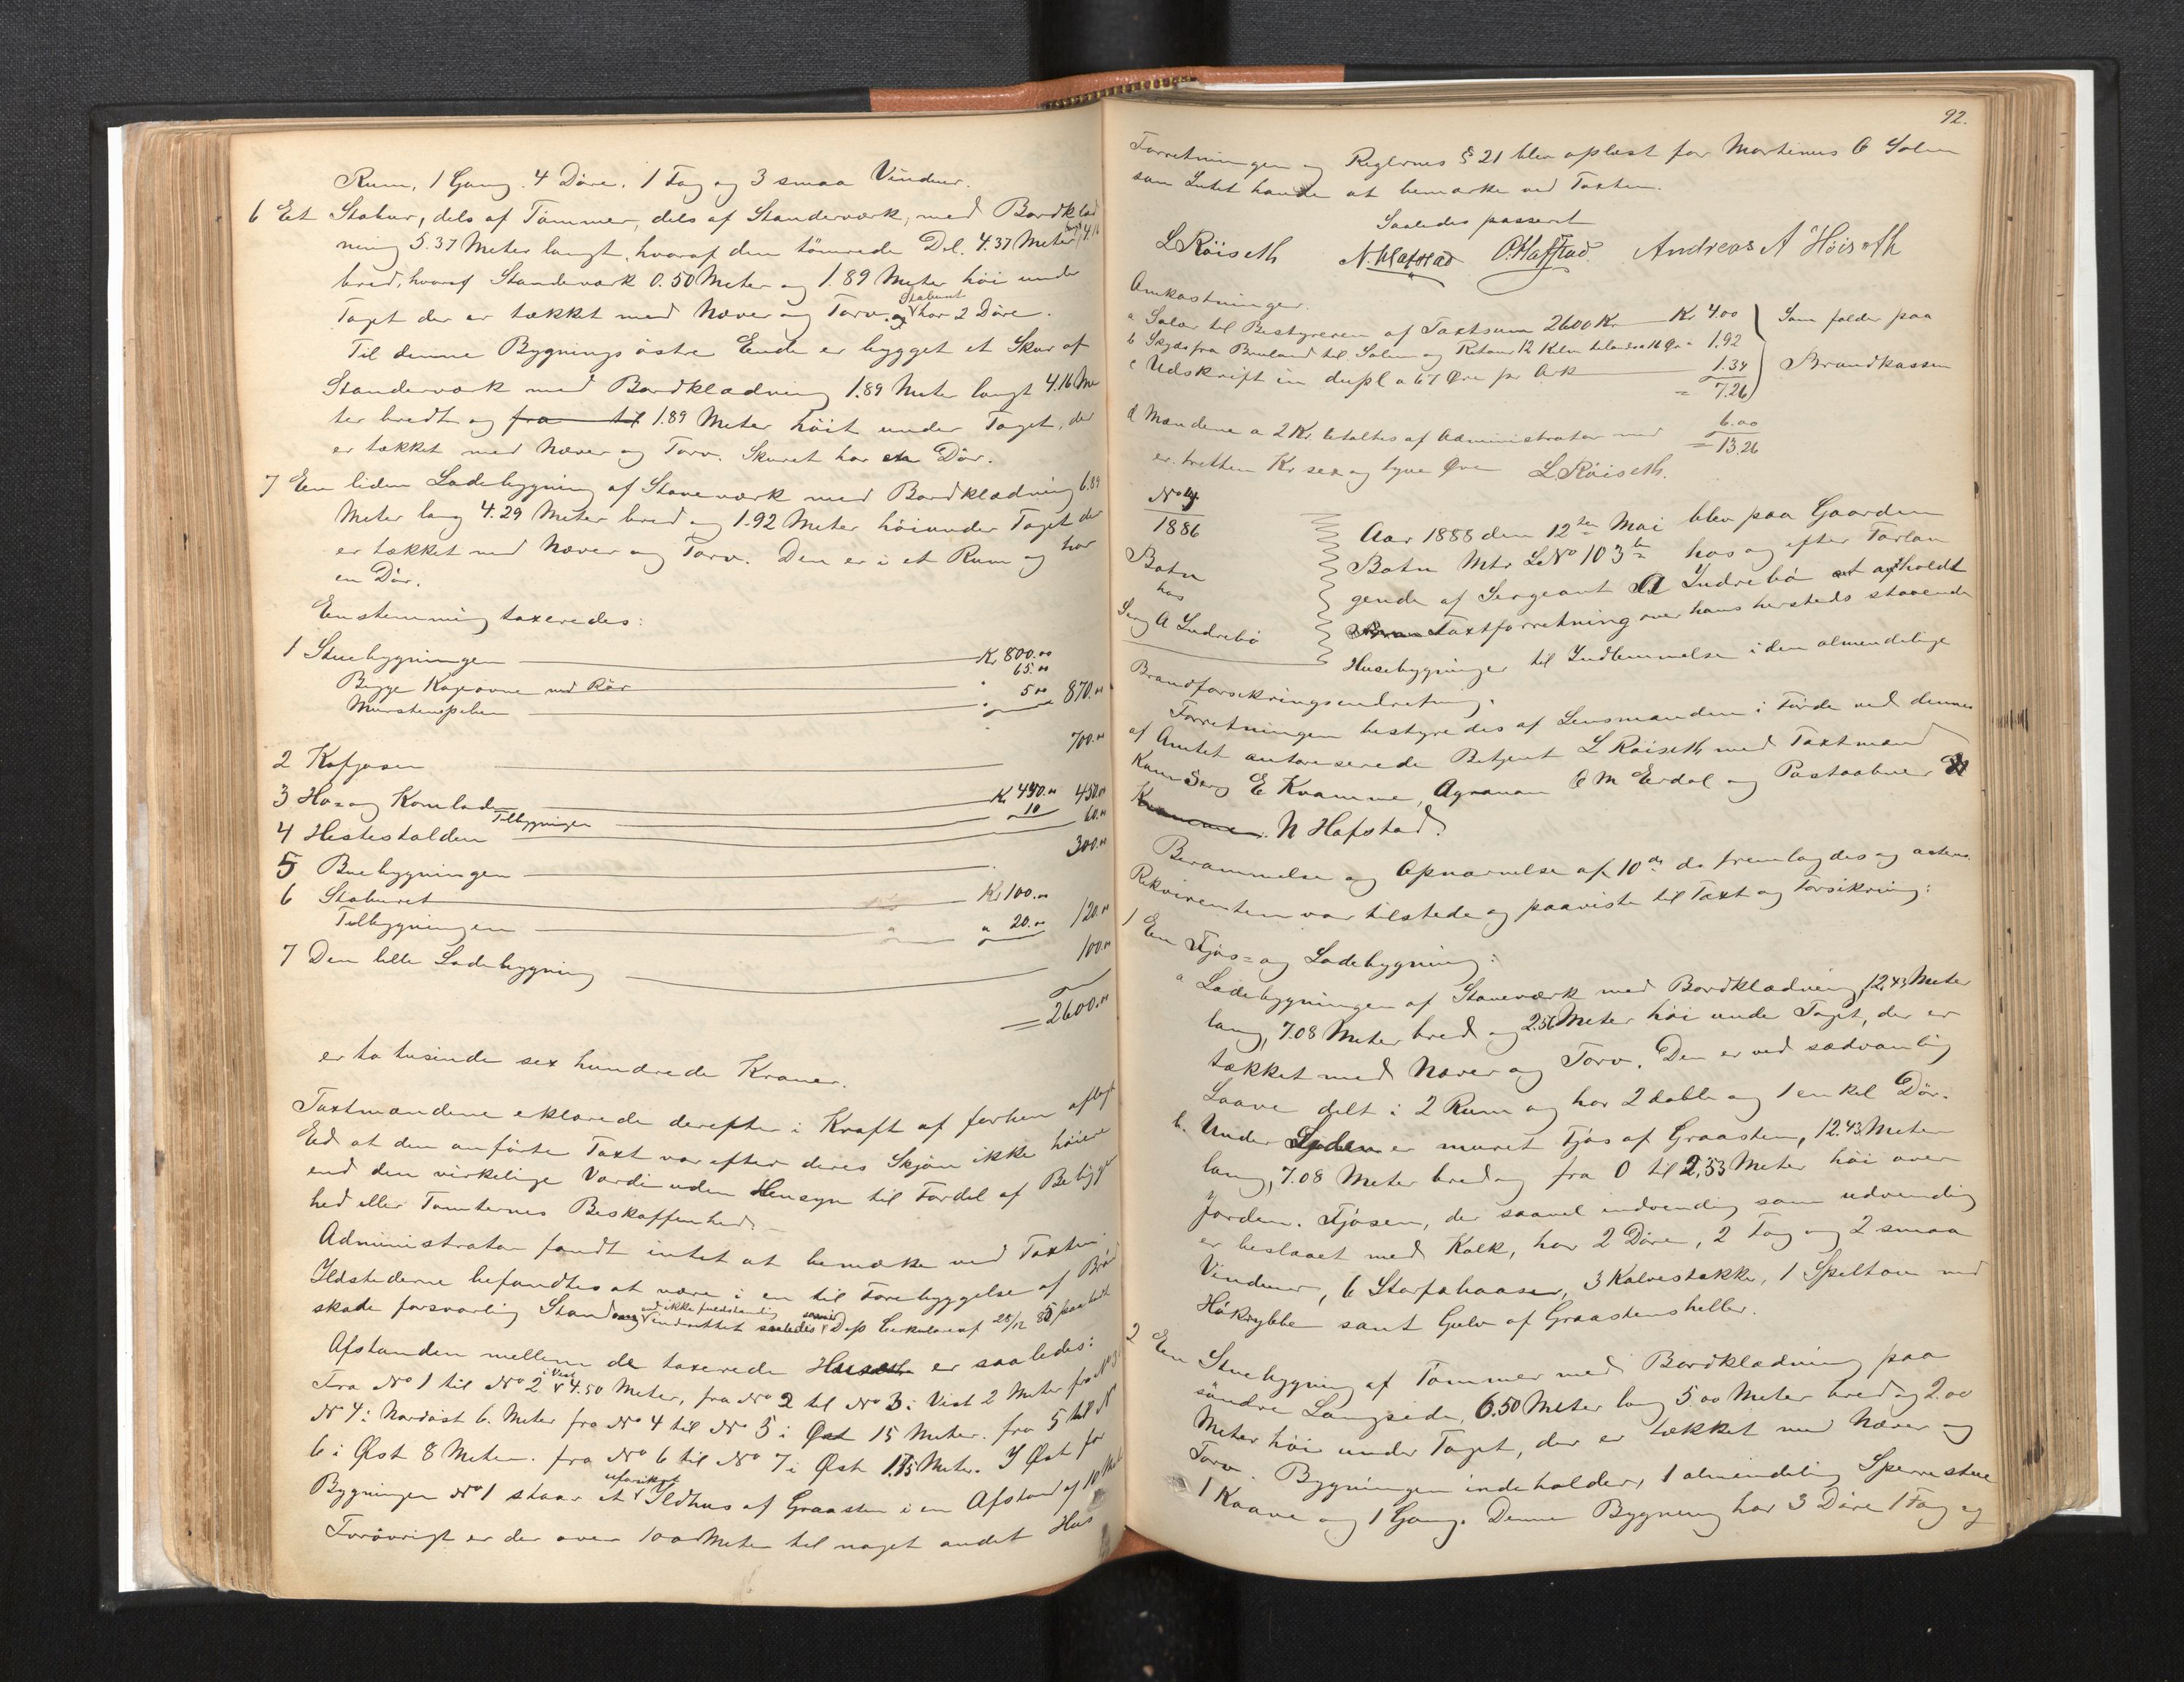 Rum, 1 Gang. 4 Döre. 1 Fag og 3 smaa Vinduer.
6 Et Stabur, dels af Tömmer, dels af Standerværk, med Bordklæd
ning 5.37 Meter langt, hvoraf den tömrede Del. 4.37 Meter langt 4.16
bred, hvoraf Standerværk 0.50 Meter og 1.89 Meter höi under
Taget der er tækket med Næver og Torv. og Staburet har 2 Döre.
Til denne Bygnings östre Ende er bygget et Skur af
Standerværk med Bordklædning 1.89 Meter langt 4.16 Me
ter bredt og fra til 1.89 Meter höit under Taget, der
er tækket med Næver og Torv. Skuret har en Dör.
7 Een liden Ladebygning af Staveværk med Bordklædning 6.89
Meter lang 4.29 Meter bred og 1.92 Meter höi under Taget der
er tækket med Næver og Torv. Den er i et Rum og har
en Dör.
Eenstemmig taxeredes:
1 Stuebygningen Kr 800.00
Begge Kogeovne med Rör " 65.00
Murstenspiben " 5.00 870.00
2 Kofjøsen 700.00
3 Hø- og Kornladen Kr 440.00 450.00
Tilbygningen 10
4 Hestestalden 60.00
5 Buebygningen 300.00
6 Staburet Kr 100.00
Tilbygningen " 20.00 120.00
7 Den lille Ladebygning 100.00
= 2600.00
er to tusinde sex hundrede Kroner.
Taxtmændene erklærede derefter i Kraft af forhen aflagt
Ed at den anförte Taxt var efter deres Skjön ikke höiere
end den virkelige Værdi uden Hensyn til Fordel af Beliggen
hed eller Tomternes Beskaffenhed.
Administrator fandt intet at bemærke ved Taxten.
Ildstederne befandtes at være i en til Forebyggelse af Brand
skade forsvarlig Stand og ikke fuldstændig indrettet saaledes som Dep Cirkulære af 28/12 85 paabudt
Afstanden mellem de taxerede Huse er saaledes:
Fra No 1 til No 2 i Vest 4.50 Meter, fra No 2 til No 3 i Vest 2 Meter fra No 3 til
No 4 i Nordöst 6. Meter fra No 4 til No 5 i Øst 15 Meter. fra 5 til No
6 i Øst 8 Meter. fra No 6 til No 7 i Øst 1.75 Meter. I Øst for
Bygningen No 1 staar et uforsikret Ildhus af Graasten i en Afstand af 10 Met
Forövrigt er der over 100 Meter til noget andet Hus
92.
Forretningen og Reglernes § 21 blev oplæst for Martinus O Solem
som Intet havde at bemærke ved Taxten.
Saaledes passeret
L Röiseth N. Hafstad O. Hafstad. Andreas A Höiseth
Omkostninger.
a Salær til Bestyreren af Taxtsum 2600 Kr Kr 4.00 Som falder paa
b Skyds fra Bruland til Solem og Retour 12 Kilm tilands a 16 Øre " 1.92
c Udskrift in dupl a 67 Øre pr Ark 1.34 Brandkassen
= 7.26
d Mændene a 2 Kr. betaltes af Administrator med 6.00
= 13.26
er tretten Kr sex og tyve Øre L Röiseth.
No 4
1886
Botn
hos
Serg A Indrebö
Aar 1888 den 12te Mai blev paa Gaarden
Botn Mtr LNo 103 b hos og efter Forlan
gende af Sergeant A Indrebö afholdt
Taxtforretning over hans hersteds staaende
Husebygninger til Indlemmelse i den almindelige
Brandforsikringsindretning.
Forretningen bestyredes af Lensmanden i Förde ved dennes
af Amtet autoriserede Betjent L Röiseth med Taxtmænd
Serg E Kvamme, Agronom O M Eerdal og Postaabner
Kvamme. N Hafstad.
Berammelse og Opnævnelse af 10de ds fremlagdes og acteres.
Rekvirenten var tilstede og paaviste til Taxt og Forsikring:
1 Een Fjøs- og Ladebygning:
a Ladebygningen af Staveværk med Bordklædning 12.43 Meter
lang, 7.08 Meter bred og 2.56 Meter höi under Taget, der er
tækket med Næver og Torv. Den er ved sædvanlig
Laave delt i 2 Rum og har 2 doble og 1 enkel Dör.
b. Under Laden er muret Fjös af Graasten, 12.43 Meter
lang, 7.08 Meter bred og fra 0 til 2,53 Meter höi over
Jorden. Fjösen, der saavel indvendig som udvendig
er beslaaet med Kalk, har 2 Döre, 2 Fag og 2 smaa
Vinduer, 6 Storfæbaaser, 3 Kalvestakke, 1 Speltou med
Hökrybbe samt Gulv af Graastensheller.
2 Een Stuebygning af Tömmer med Bordklædning paa
söndre Langside, 6.50 Meter lang 5.00 Meter bred og 2.00
Meter höi under Taget, der er tækket med Næver og
Torv. Bygningen indeholder, 1 almindelig Sperrestue
1 Kaave og 1 Gang. Denne Bygning har 3 Döre 1 Fag og